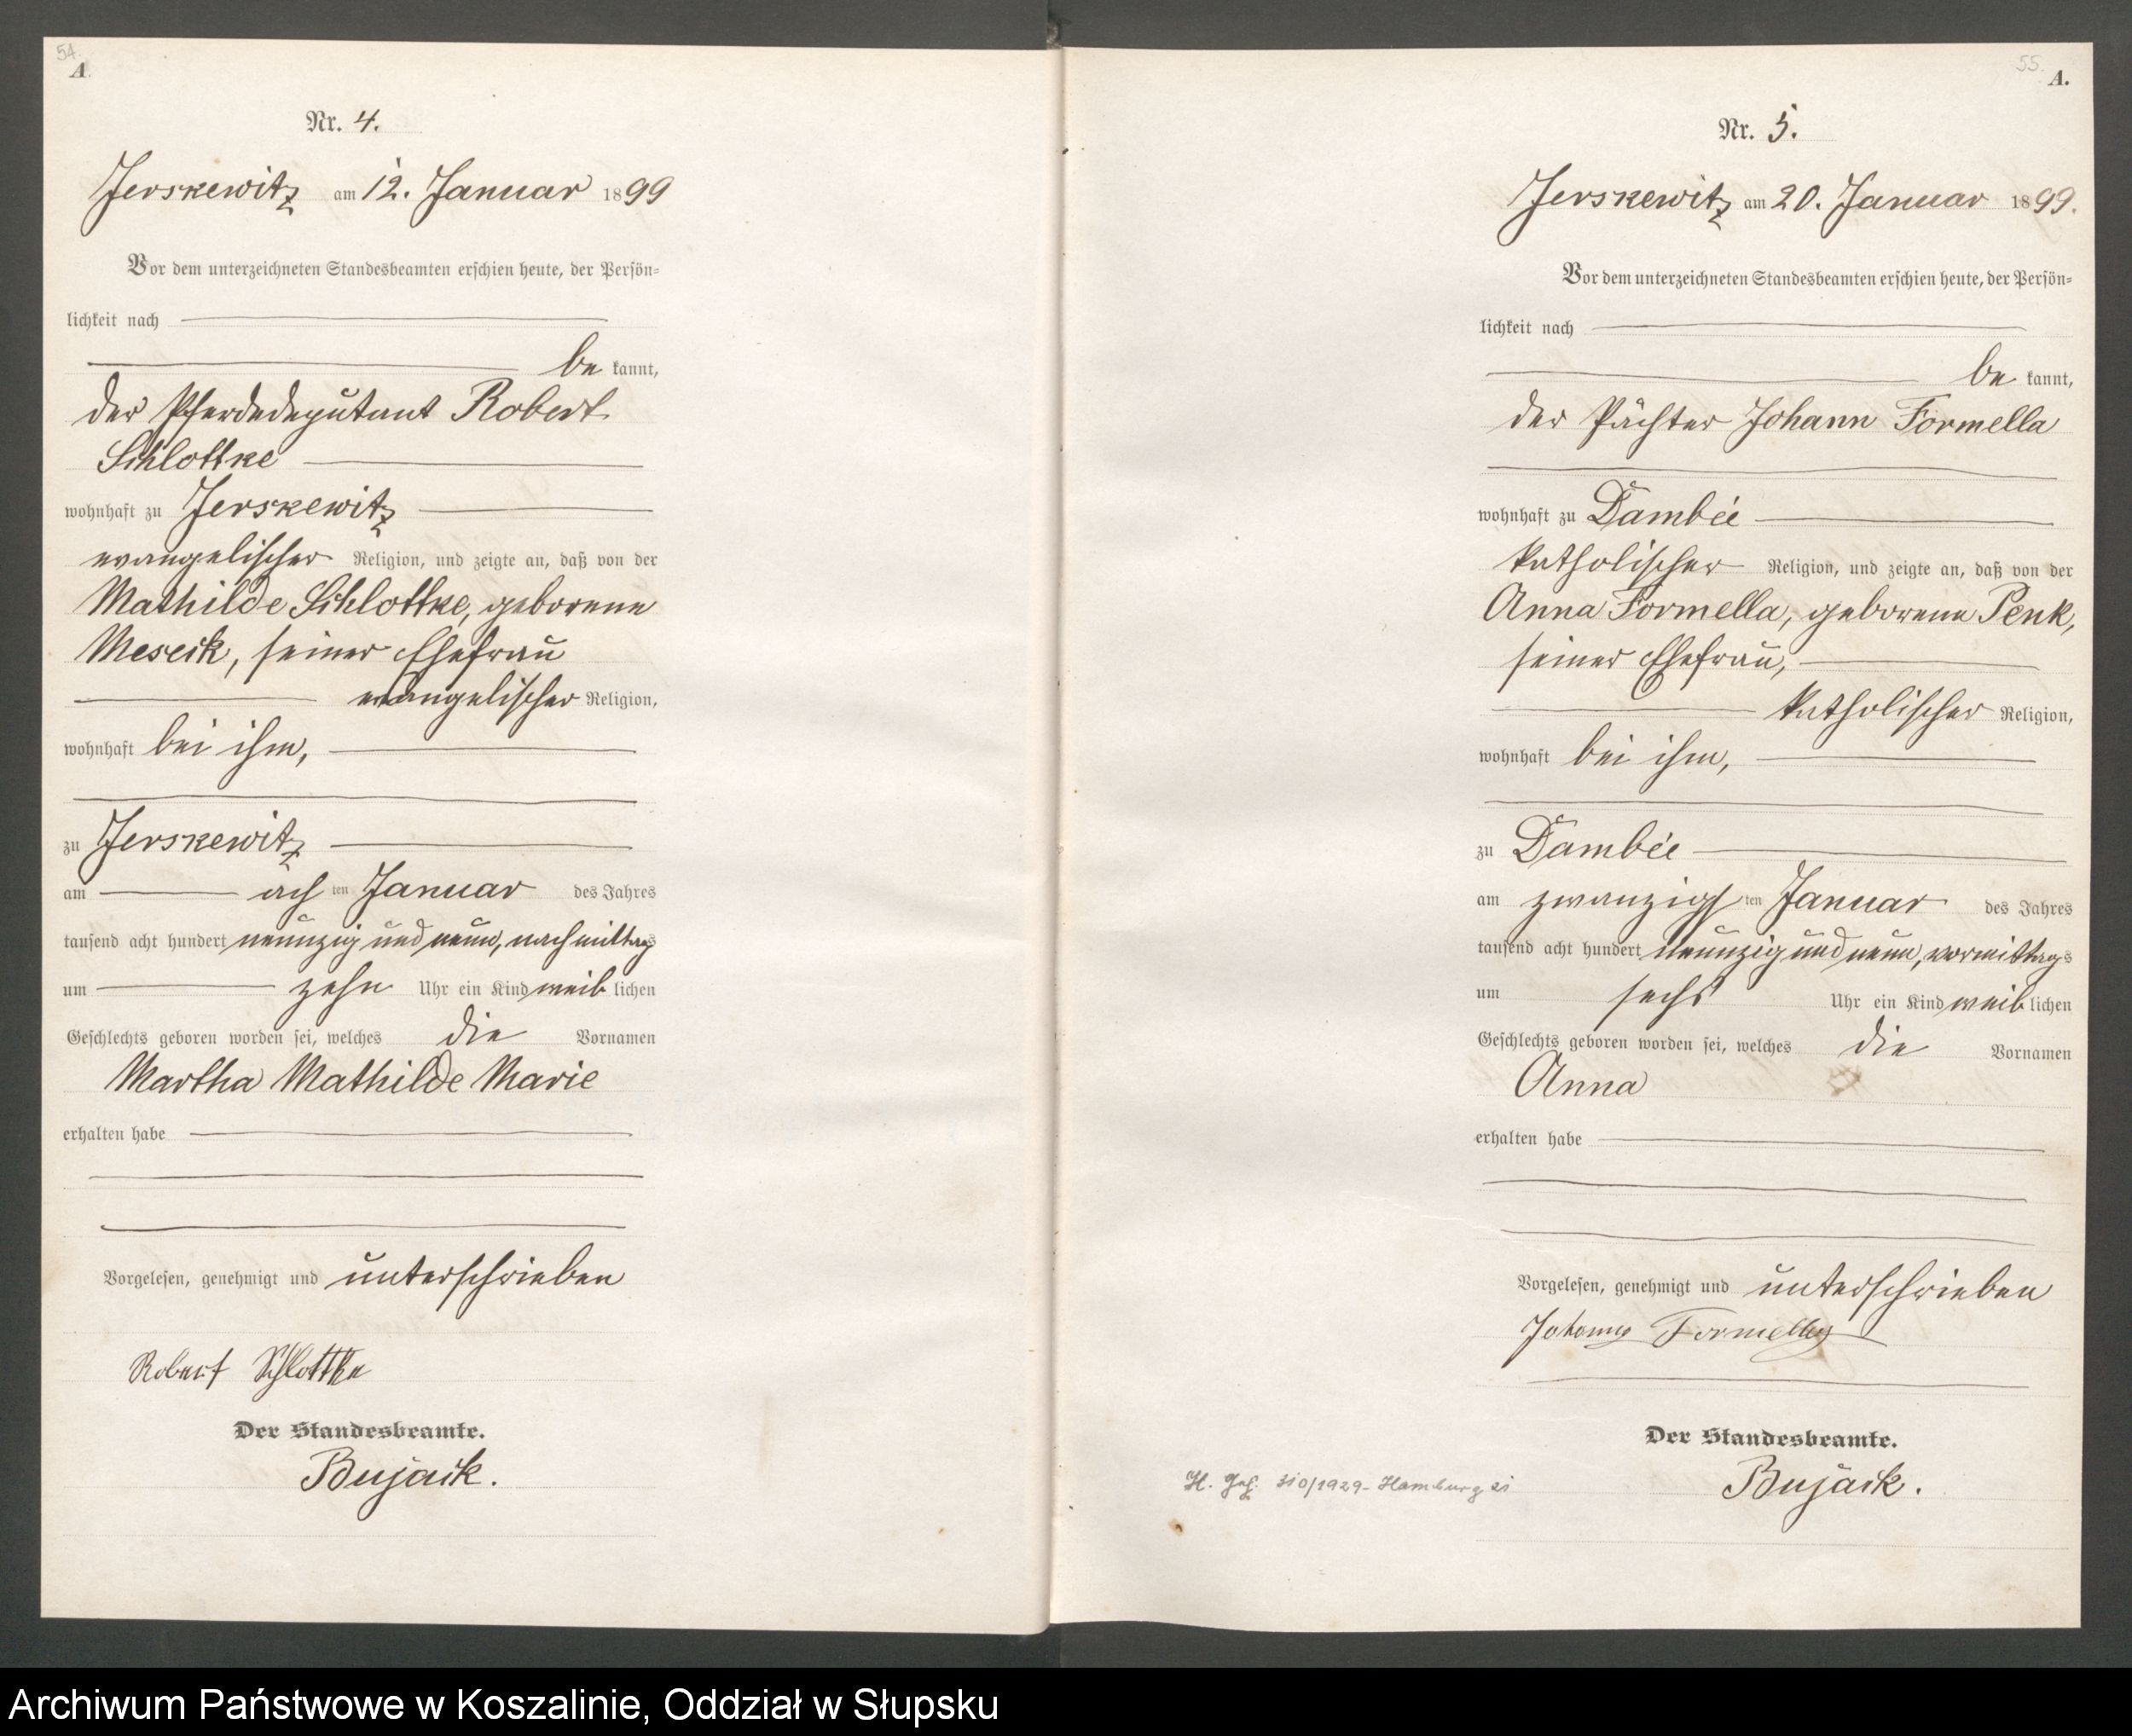 54.
A.
Nr. 4.
Jerskewitz am 12. Januar 1899
Vor dem unterzeichneten Standesbeamten erschien heute, der Persön-
lichkeit nach
be kannt,
der Pferdedeputant Robert
Schlottke
wohnhaft zu Jerskewitz
evangelischer Religion, und zeigte an, daß von der
Mathilde Schlottke, geborene
Meseck, seiner Ehefrau
evangelischer Religion,
wohnhaft bei ihm,
zu Jerskewitz
am ach ten Januar des Jahres
tausend acht hundert neunzig und neun, nachmittags
um zehn Uhr ein Kind weib lichen
Geschlechts geboren worden sei, welches die Vornamen
Martha Mathilde Marie
erhalten habe
Vorgelesen, genehmigt und unterschrieben
Robert Schlottke
Der Standesbeamte.
Bujack.
55.
A.
Nr. 5.
Jerskewitz am 20. Januar 1899.
Vor dem unterzeichneten Standesbeamten erschien heute, der Persön-
lichkeit nach
be kannt,
der Pächter Johann Formella
wohnhaft zu Dambee
katholischer Religion, und zeigte an, daß von der
Anna Formella, geborene Penk,
seiner Ehefrau,
katholischer Religion,
wohnhaft bei ihm,
zu Dambee
am zwanzigs ten Januar des Jahres
tausend acht hundert neunzig und neun, vormittags
um sechs Uhr ein Kind weib lichen
Geschlechts geboren worden sei, welches die Vornamen
Anna
erhalten habe
Vorgelesen, genehmigt und unterschrieben
Johann Formella
Der Standesbeamte.
Bujack.
H. 310/1929 - Hamburg
Archiwum Państwowe w Koszalinie, Oddział w Słupsku